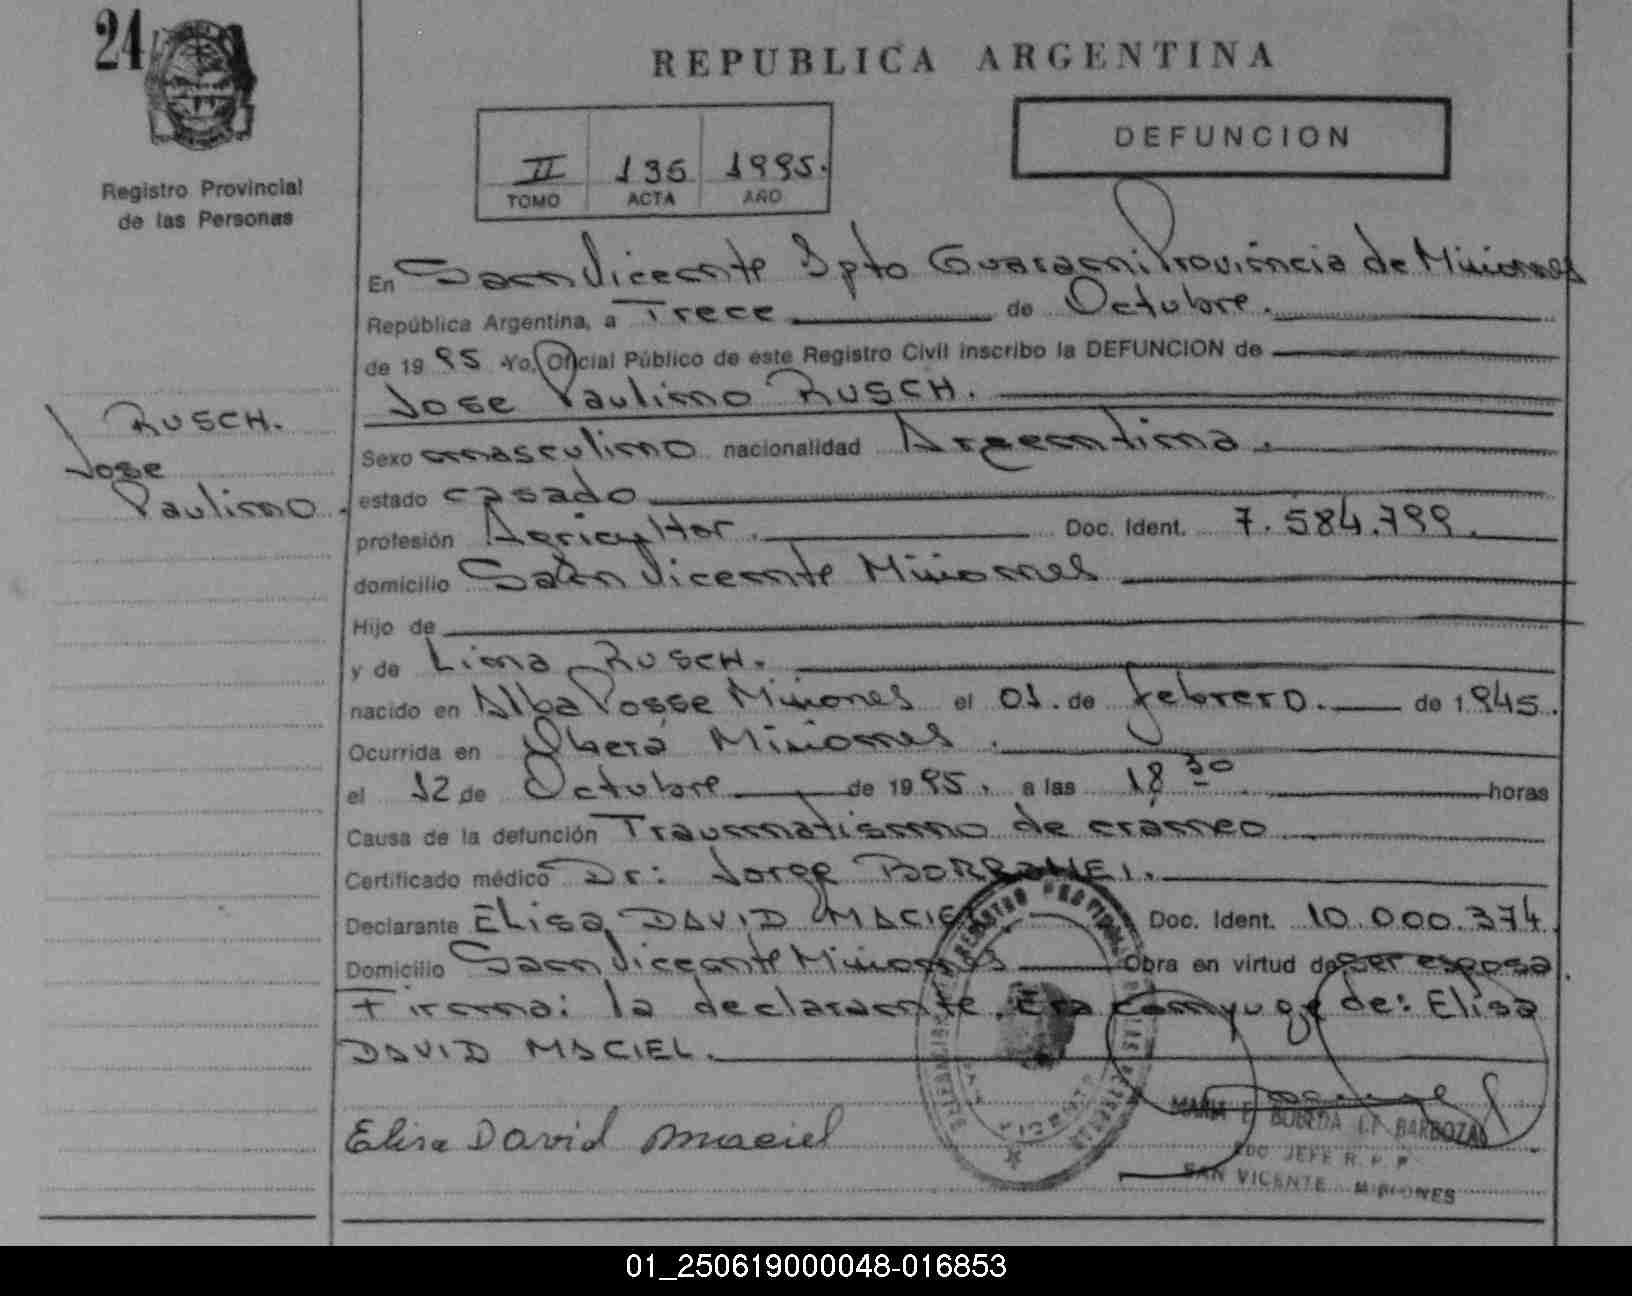 24
REPUBLICA ARGENTINA
DEFUNCION
II 135 1995.
TOMO ACTA AÑO
Registro Provincial
de las Personas
En San Vicente Dpto Guarani Provincia de Misiones
República Argentina, a Trece de Octubre.
de 1995 Yo, Oficial Público de este Registro Civil inscribo la DEFUNCION de
Jose Paulino RUSCH.
RUSCH.
Jose
Paulino.
Sexo masculino nacionalidad Argentina.
estado casado
profesión Agricultor. Doc. Ident. 7.584.799.
domicilio San Vicente Misiones
Hijo de
y de Lina RUSCH.
nacido en Alba Posse Misiones el 01. de febrero. de 1945.
Ocurrida en Oberá Misiones.
el 12 de Octubre de 1995. a las 18 30 horas
Causa de la defunción Traumatismo de cráneo
Certificado médico Dr: Jorge
Declarante Elisa DAVID MACIEL Doc. Ident. 10.000.374
Domicilio San Vicente Misiones Obra en virtud de ser esposa.
Firma: la declarante. Era conyuge de: Elisa
DAVID MACIEL.
Elisa David Maciel
MARIA E. BOBEDA DE BARBOZA
JEFE R. P. P.
SAN VICENTE MISIONES
01_250619000048-016853